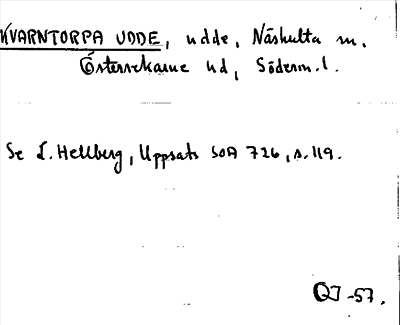 KVARNTORPA UDDE, udde, Näshulta sn.
Österrekarne hd, Söderm.l.
Se L. Hellberg, Uppsats SOA 726, s. 119.
QJ -57.